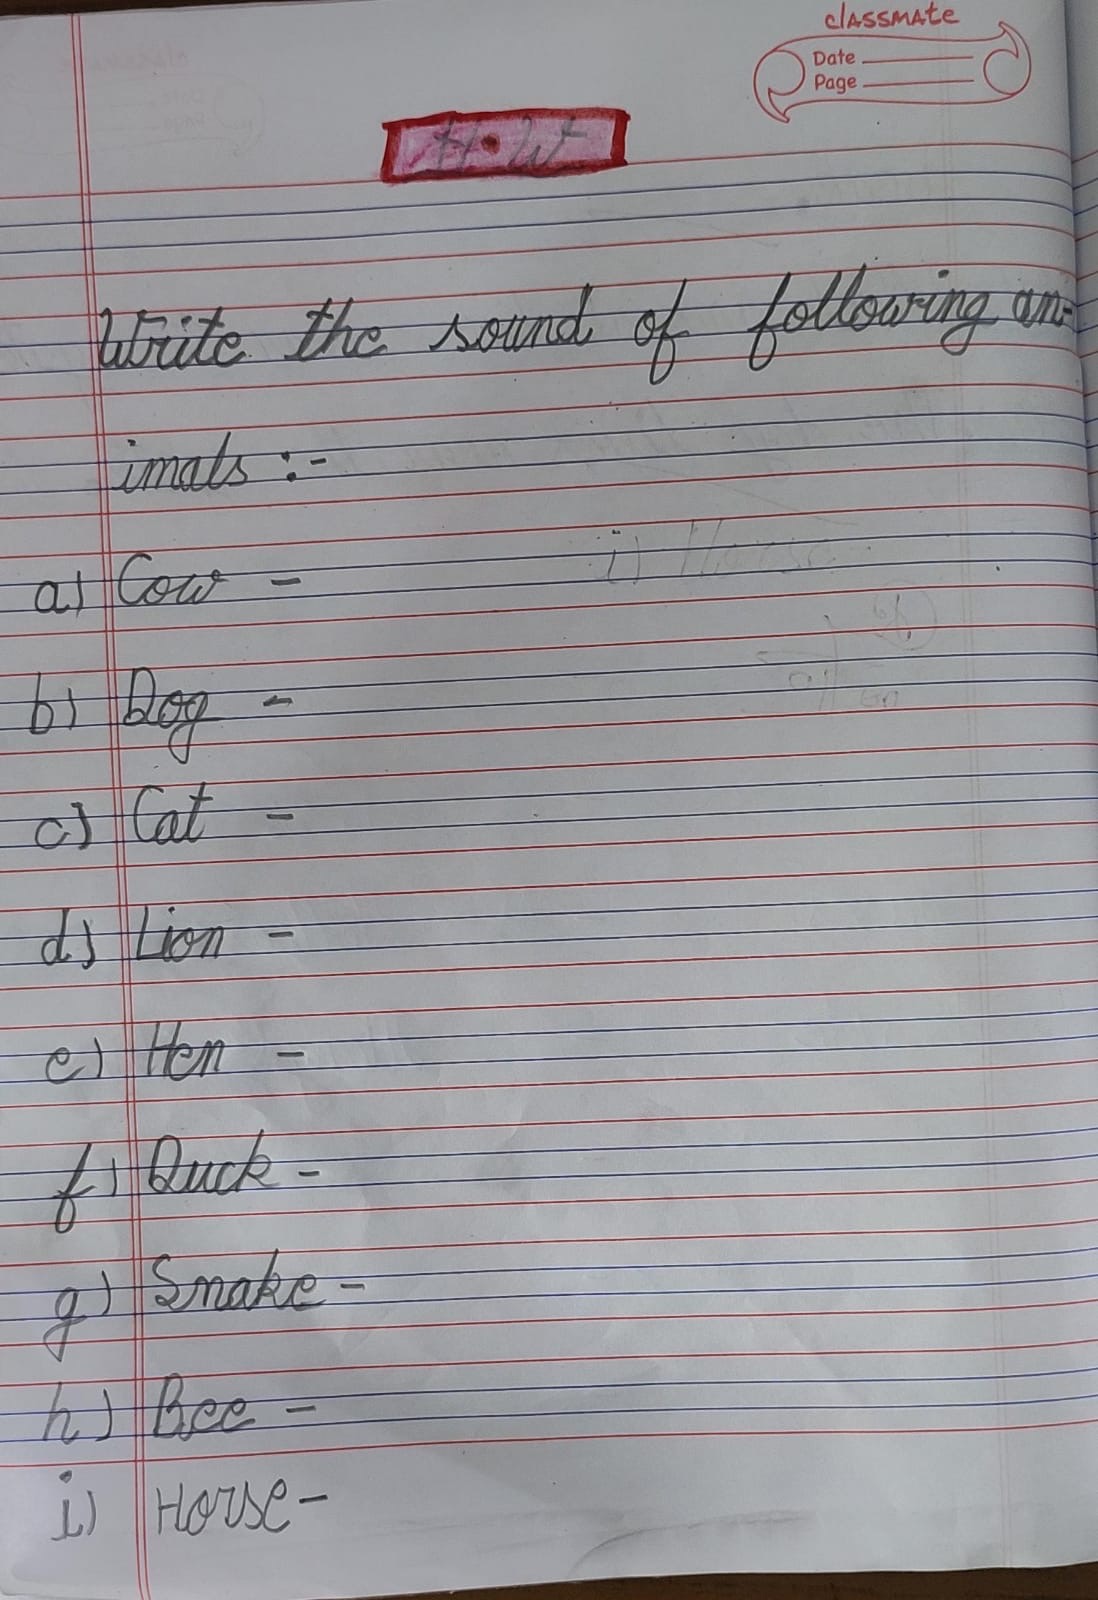 classmate
Date
Page
H.W
Write the sound of following an-
imals :-
a) Cow -
i) Horse
b) Dog -
c) Cat -
d) Lion -
e) Hen -
f) Duck -
g) Snake -
h) Bee -
i) Horse -